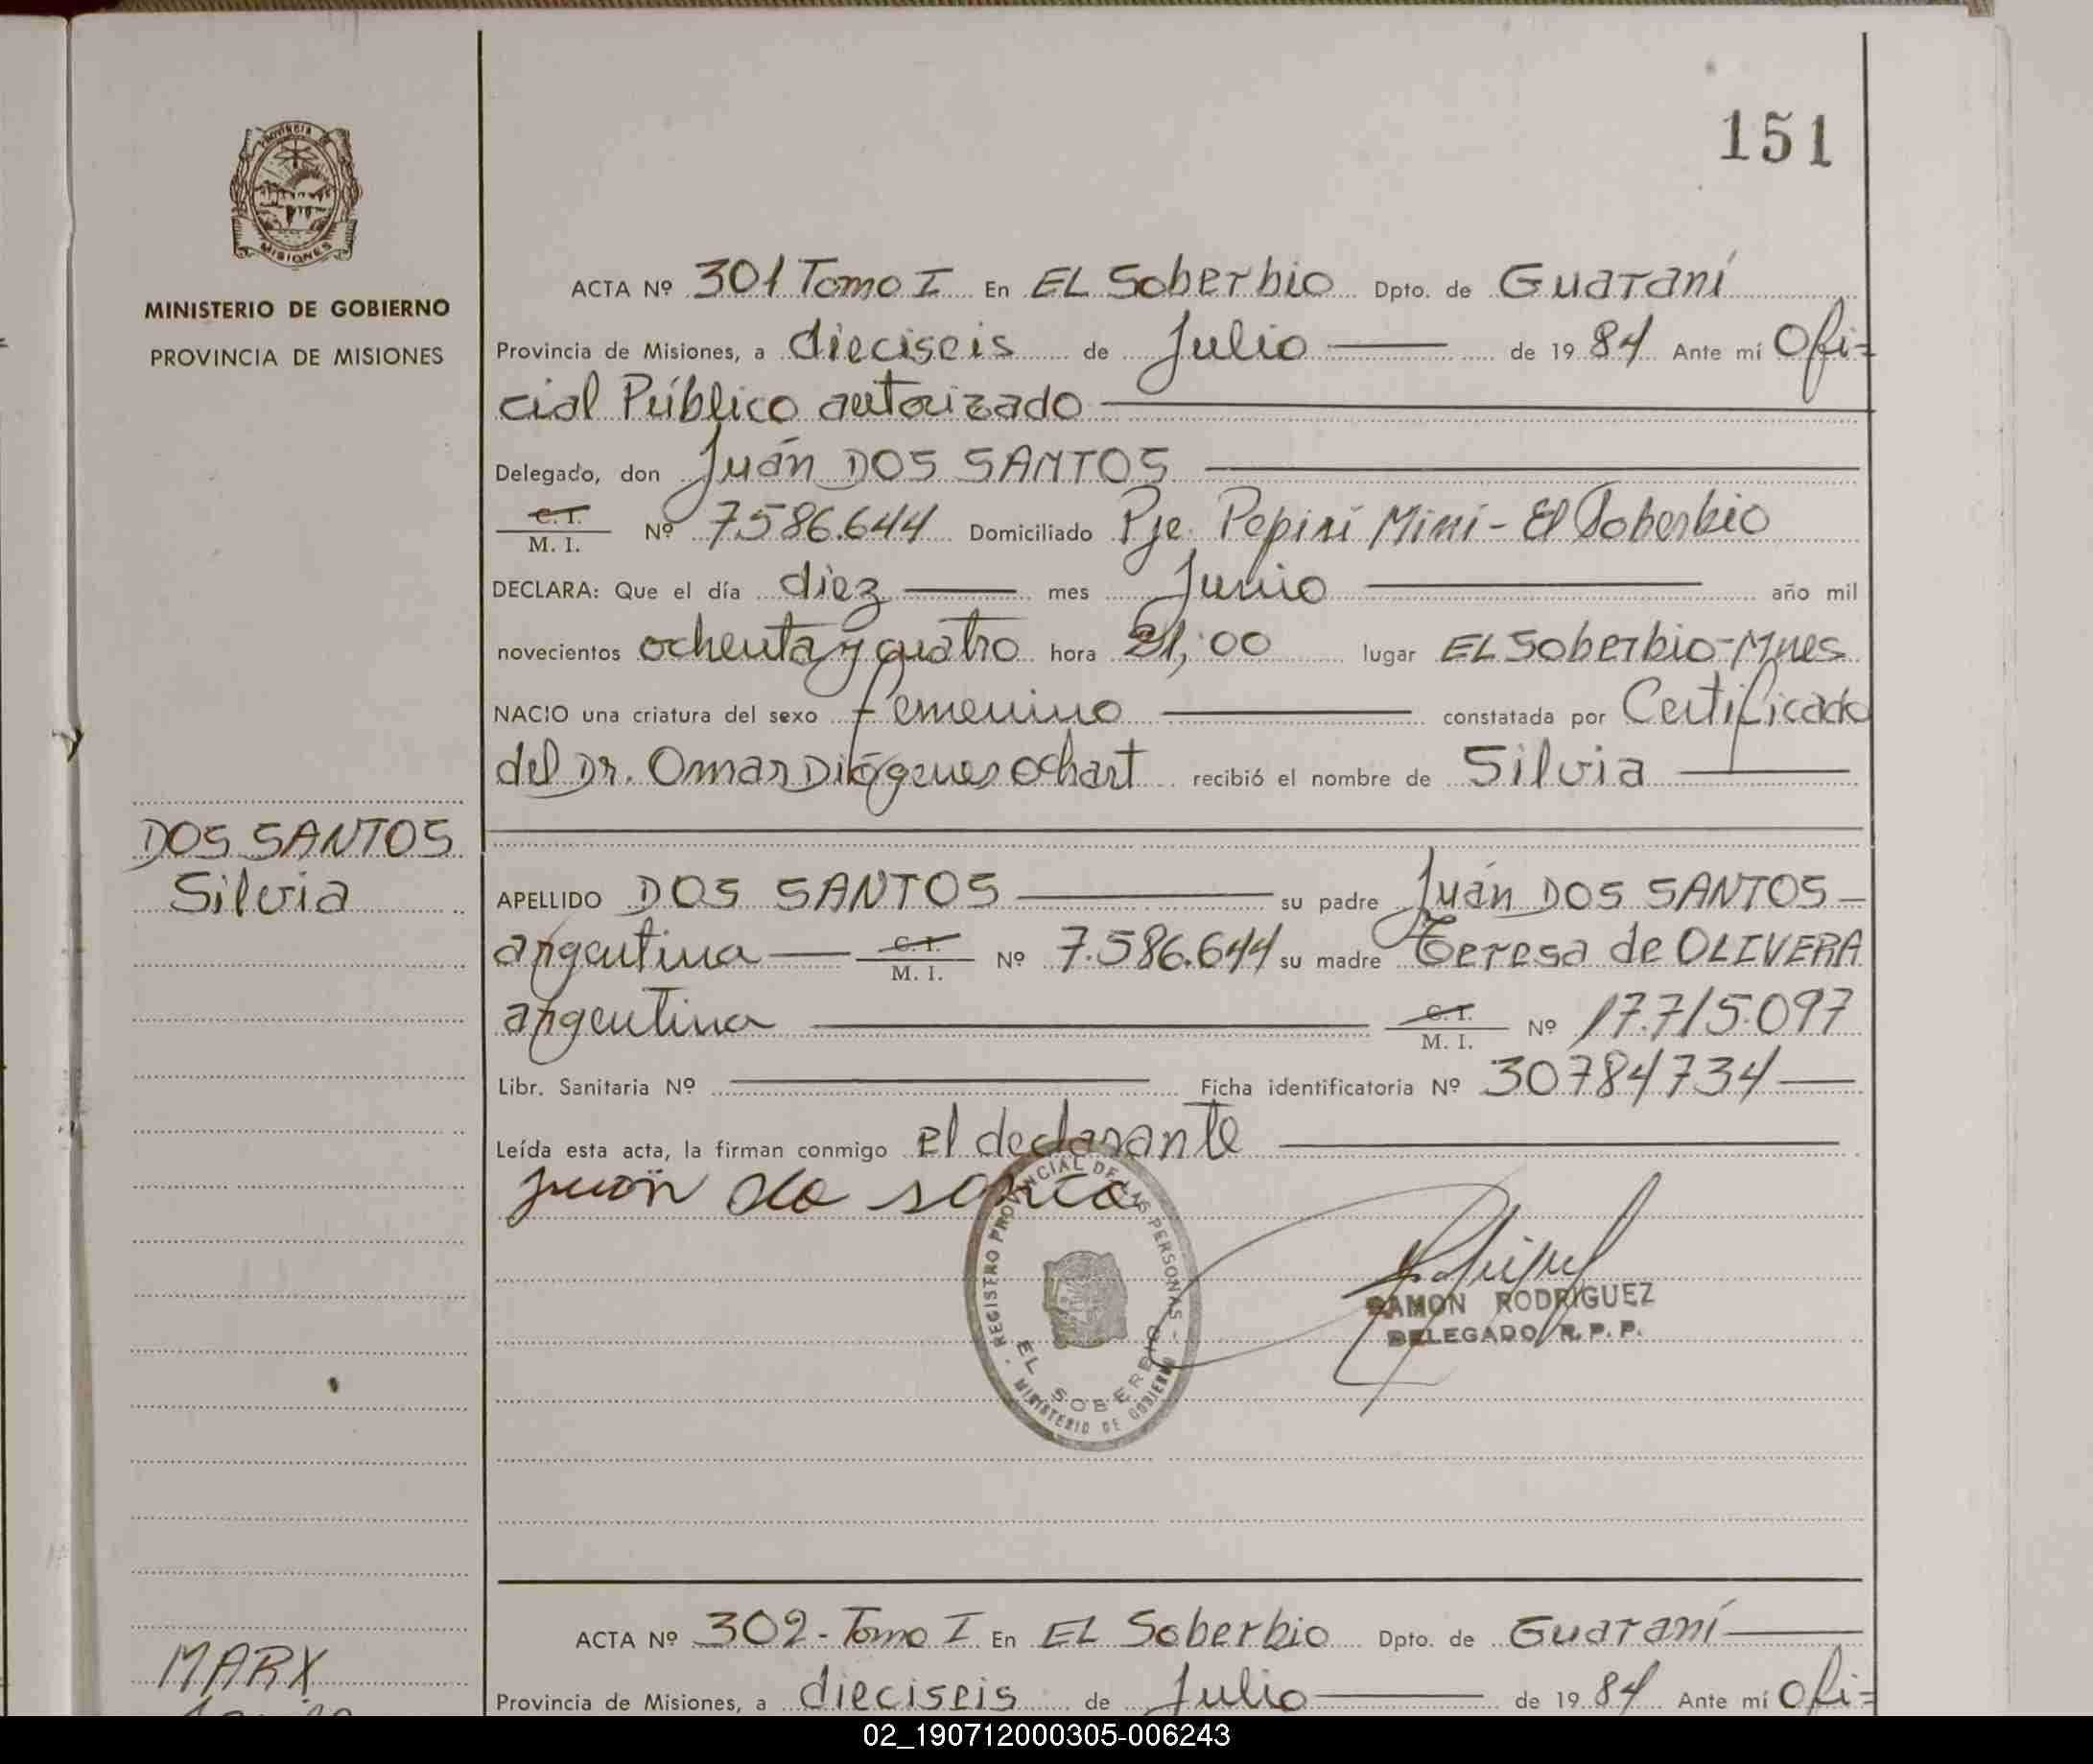 151
PROVINCIA DE
MISIONES
MINISTERIO DE GOBIERNO
PROVINCIA DE MISIONES
ACTA Nº 301 Tomo I En EL Soberbio Dpto. de Guaraní
Provincia de Misiones, a dieciseis de Julio de 1984 Ante mí Ofi-
cial Público autorizado
Delegado, don Juán DOS SANTOS
C. I.
M. I. Nº 7.586.644 Domiciliado Pje. Pepirí Miní - El Soberbio
DECLARA: Que el día diez mes Junio año mil
novecientos ochenta y cuatro hora 21,00 lugar EL Soberbio-Mnes
NACIO una criatura del sexo femenino constatada por Certificado
del Dr. Omar Diógenes Ochart recibió el nombre de Silvia
DOS SANTOS
Silvia
APELLIDO DOS SANTOS su padre Juán DOS SANTOS
argentina C. I. M. I. Nº 7.586.644 su madre Teresa de OLIVERA
argentina C. I. M. I. Nº 17.715.097
Libr. Sanitaria Nº Ficha identificatoria Nº 30784734
Leída esta acta, la firman conmigo el declarante
REGISTRO PROVINCIAL DE LAS PERSONAS
EL SOBERBIO
MINISTERIO DE GOBIERNO
RAMON RODRIGUEZ
DELEGADO R. P. P.
ACTA Nº 302 - Tomo I En EL Soberbio Dpto. de Guaraní
MARX
Provincia de Misiones, a dieciseis de Julio de 1984 Ante mí Ofi-
02_190712000305-006243